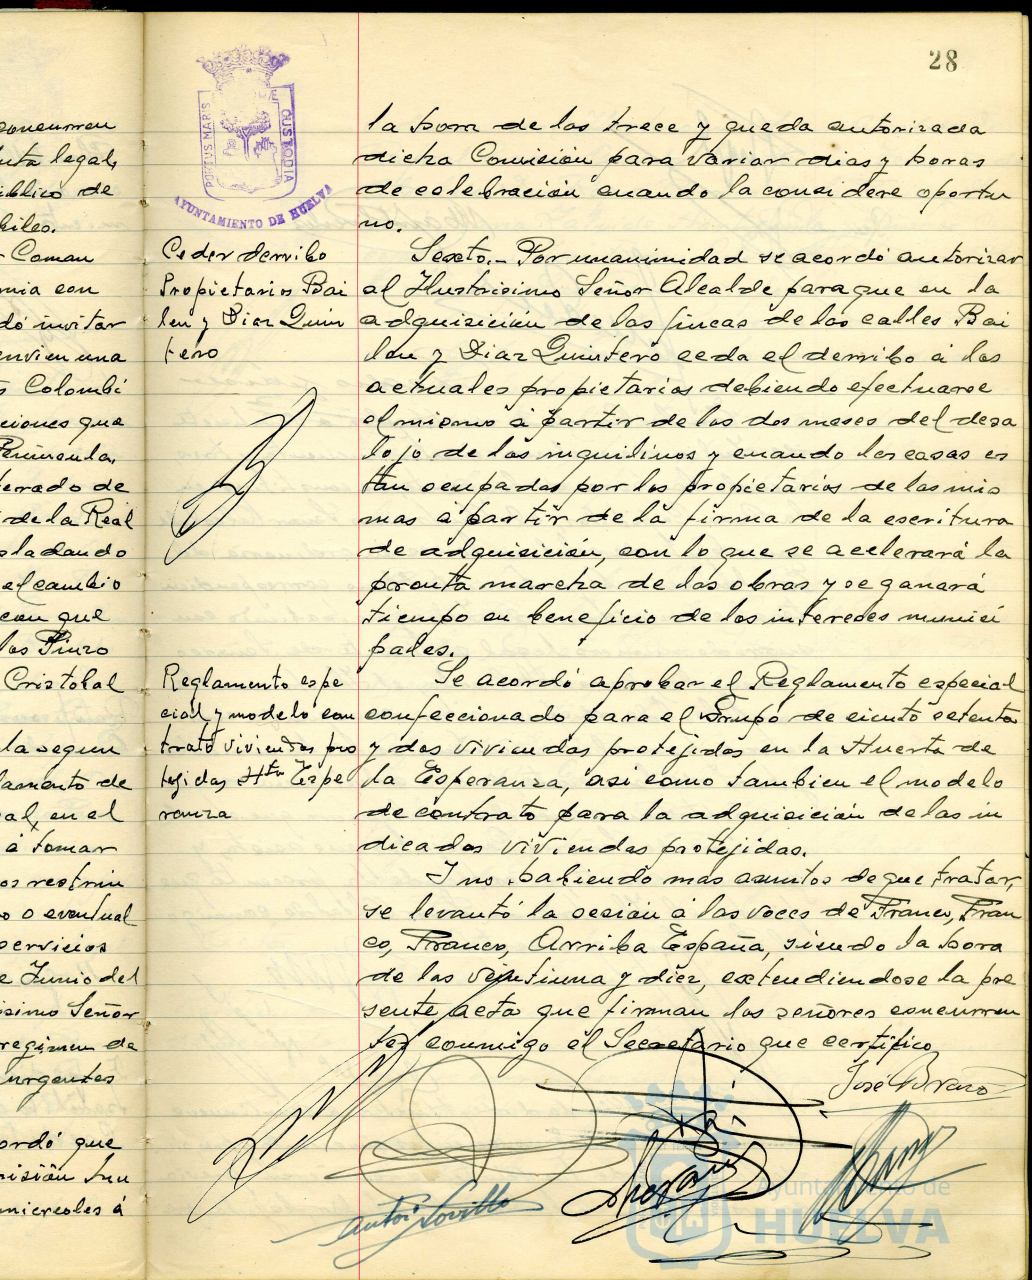 28
PORTUS MARIS
CUSTODIA
AYUNTAMIENTO DE HUELVA
concurren
legal,
ublico de
biles.
Coman
mia con
dó invitar
envien una
Colombi
ciones que
Peninsula,
terado de
de la Real
sladando
el cambio
con que
los Pinzo
Cristobal
la segun
lamento de
al, en el
á tomar
os restrin
o o eventual
servicios
e Junio del
isimo Señor
regimen de
urgentes
ordó que
misión
miercoles á
la hora de las trece y queda autorizada
dicha Comisión para variar dias y horas
de celebración cuando la considere oportu
no.
Ceder derribo
Propietarios Bai
len y Diaz Quin
tero
Sexto.- Por unanimidad se acordó autorizar
al Ilustrisimo Señor Alcalde para que en la
adquisición de las fincas de las calles Bai
len y Diaz Quintero ceda el derribo á los
actuales propietarios debiendo efectuarse
el mismo á partir de los dos meses del desa
lojo de los inquilinos y cuando las casas es
tan ocupadas por los propietarios de las mis
mas á partir de la firma de la escritura
de adquisición, con lo que se acelerará la
pronta marcha de las obras y se ganará
tiempo en beneficio de los intereses munici
pales.
Reglamento espe
cial y modelo con
trato viviendas pro
tejidas Htª Espe
ranza
Se acordó aprobar el Reglamento especial
confeccionado para el Grupo de ciento setenta
y dos viviendas protejidas en la Huerta de
la Esperanza, asi como tambien el modelo
de contrato para la adquisición de las in
dicadas viviendas protejidas.
Y no habiendo mas asuntos de que tratar,
se levantó la sesión á las voces de Franco, Fran
co, Franco, Arriba España, siendo la hora
de las veintiuna y diez, extendiendose la pre
sente acta que firman los señores concurren
tes conmigo el Secretario que certifico
José Brazo
Ayuntamiento de
HUELVA